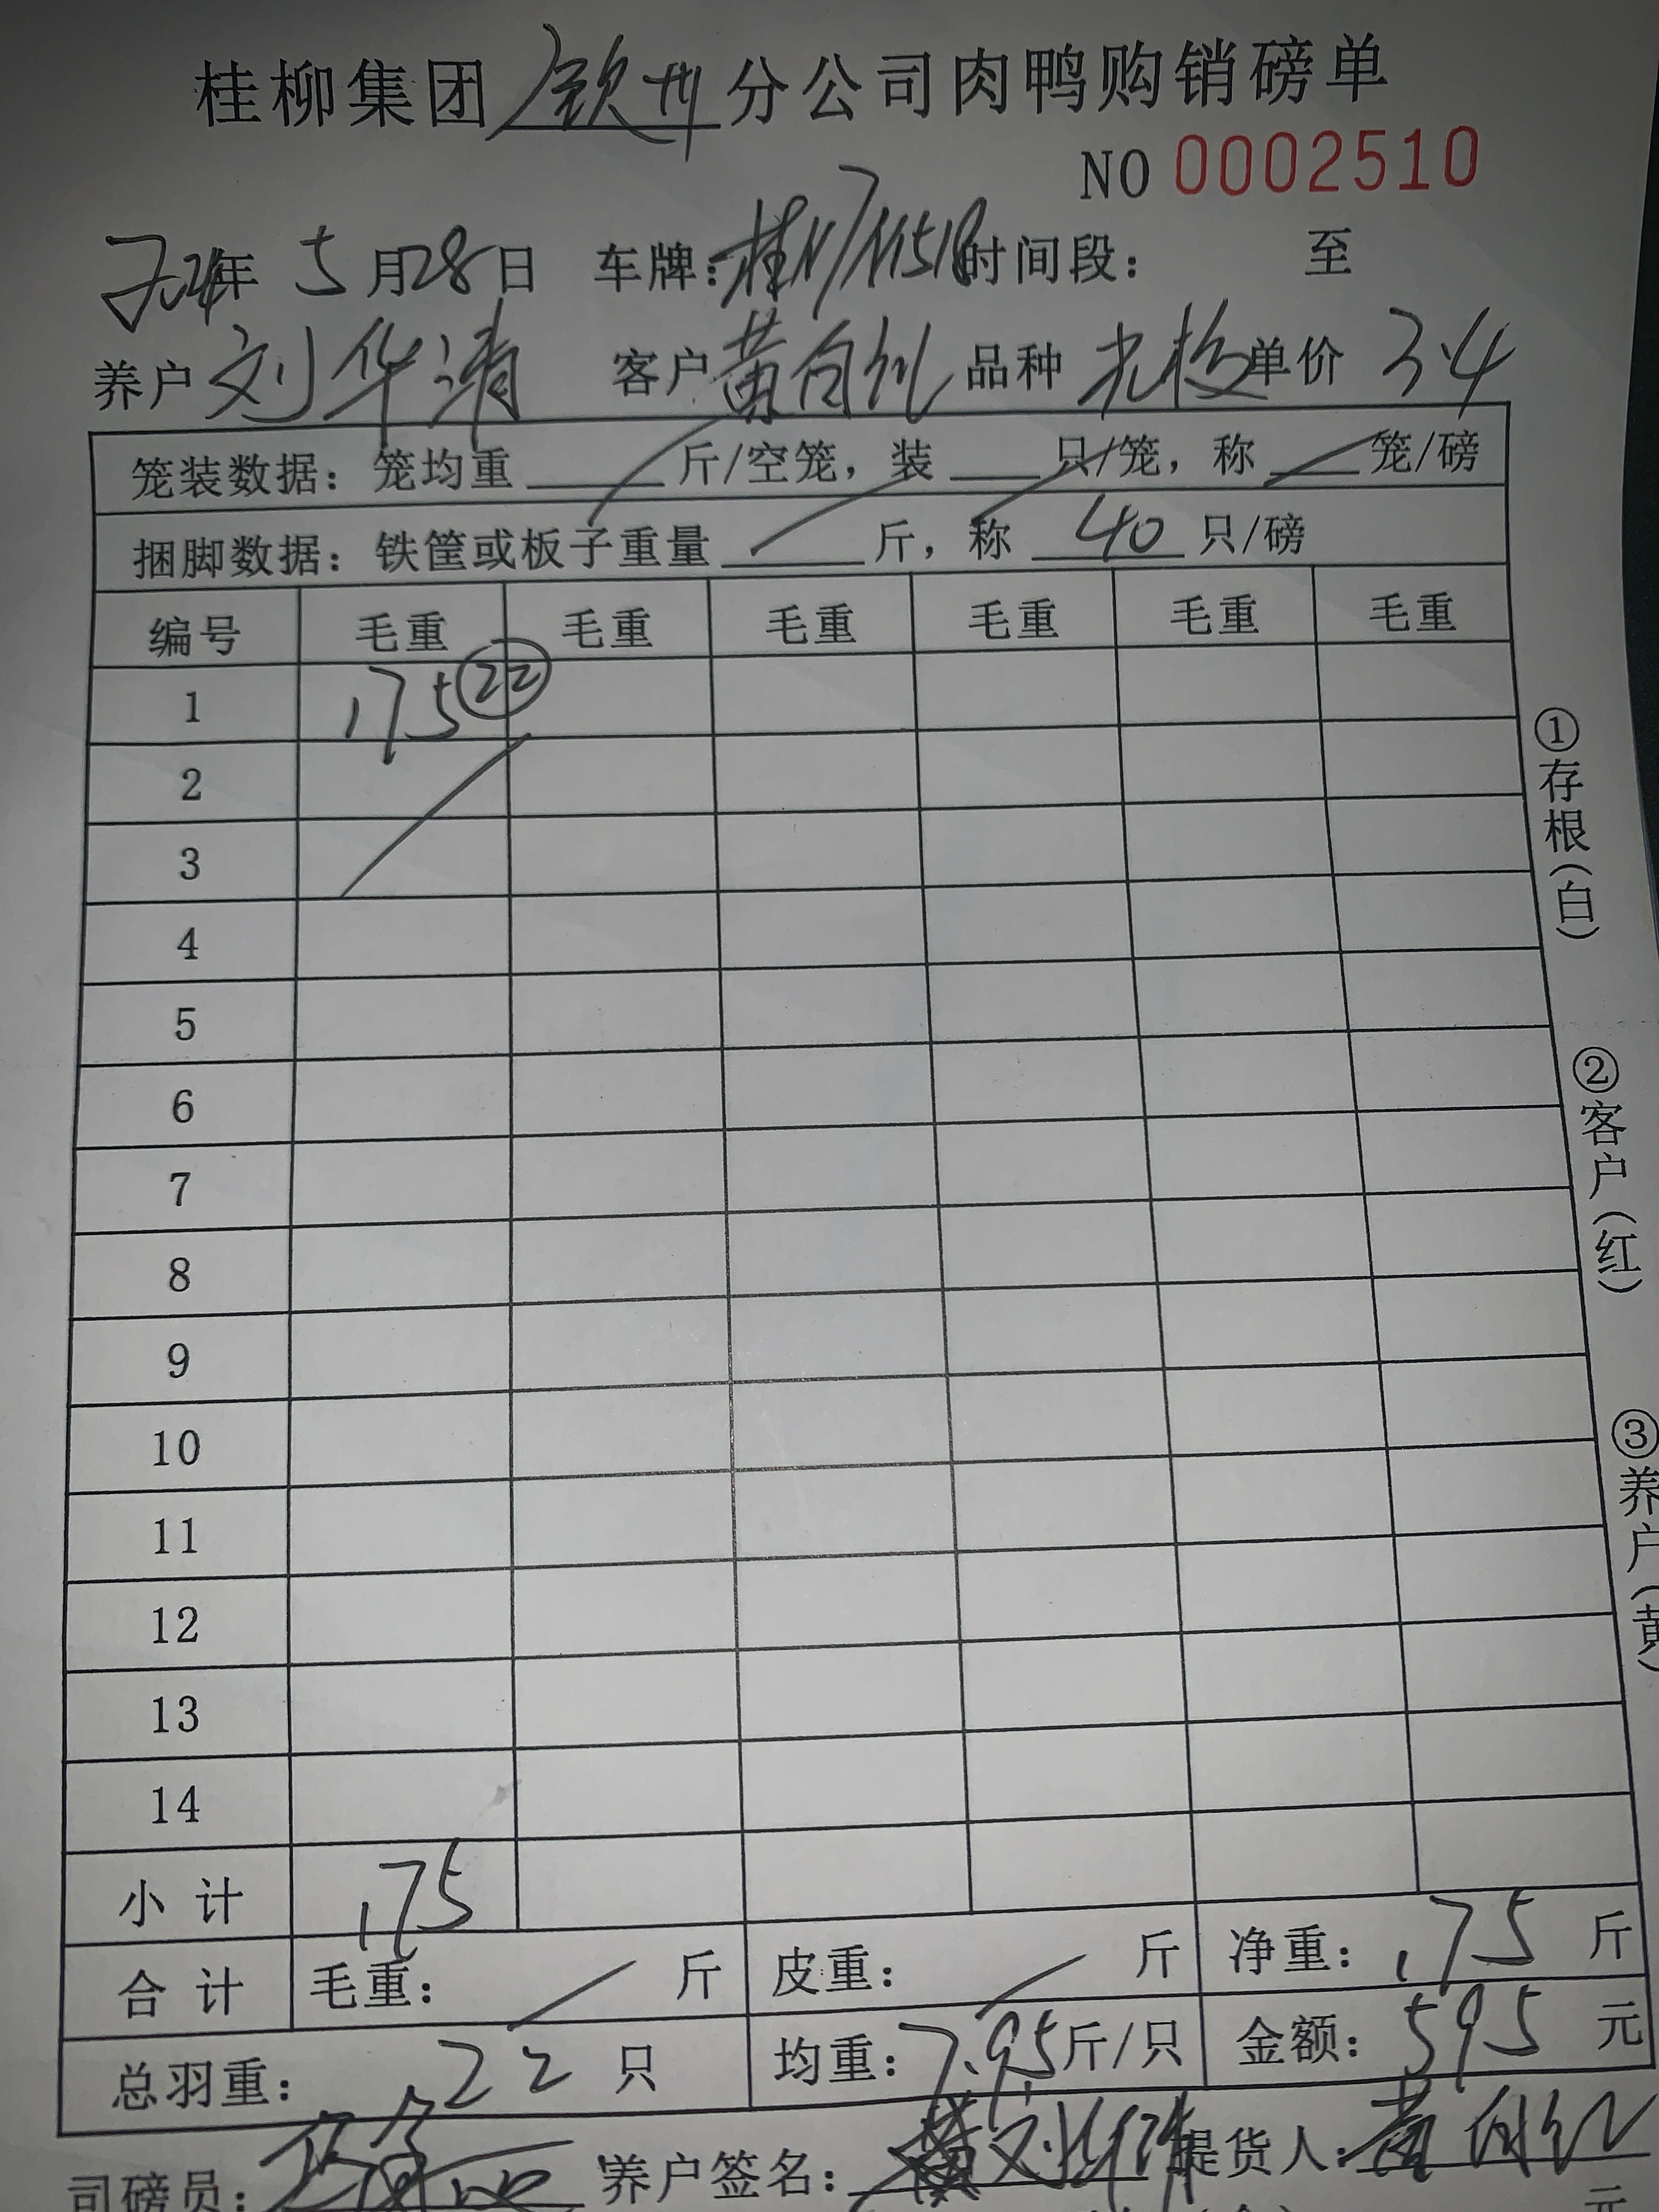 桂柳集团钦州分公司肉鸭购销磅单
NO 0002510
年 5月28日 车牌: 时间段: 至
养户 刘华清 客户 黄 品种 单价 3.4
笼装数据: 笼均重 斤/空笼, 装 只/笼, 称 笼/磅
捆脚数据: 铁筐或板子重量 斤, 称 40 只/磅
编号 毛重 毛重 毛重 毛重 毛重 毛重
1 175 22
2
3
4
5
6
7
8
9
10
11
12
13
14
小计 175
合计 毛重: 斤 皮重: 斤 净重: 175 斤
总羽重: 22 只 均重: 7.95 斤/只 金额: 595 元
司磅员: 养户签名: 提货人: 黄
元
①存根(白)
②客户(红)
③养户(黄)